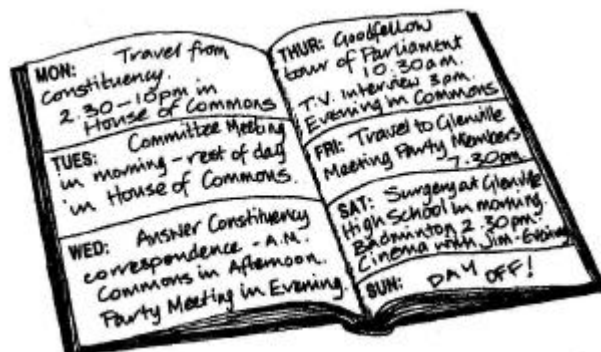 MON: Travel from
constituency.
2.30-10pm in
House of Commons
TUES: Committee Meeting
in morning - rest of day
in House of Commons.
WED: Answer Constituency
correspondence - A.M.
Commons in Afternoon.
Party Meeting in Evening.
THUR: Goodfellow
tour of Parliament
10.30am.
T.V. Interview 3pm.
Evening in Commons
FRI: Travel to Glenville
Meeting Party Members
7.30pm
SAT: Surgery at Glenville
High School in morning.
Badminton 2.30pm.
Cinema with Jim-Evening
SUN: DAY OFF!